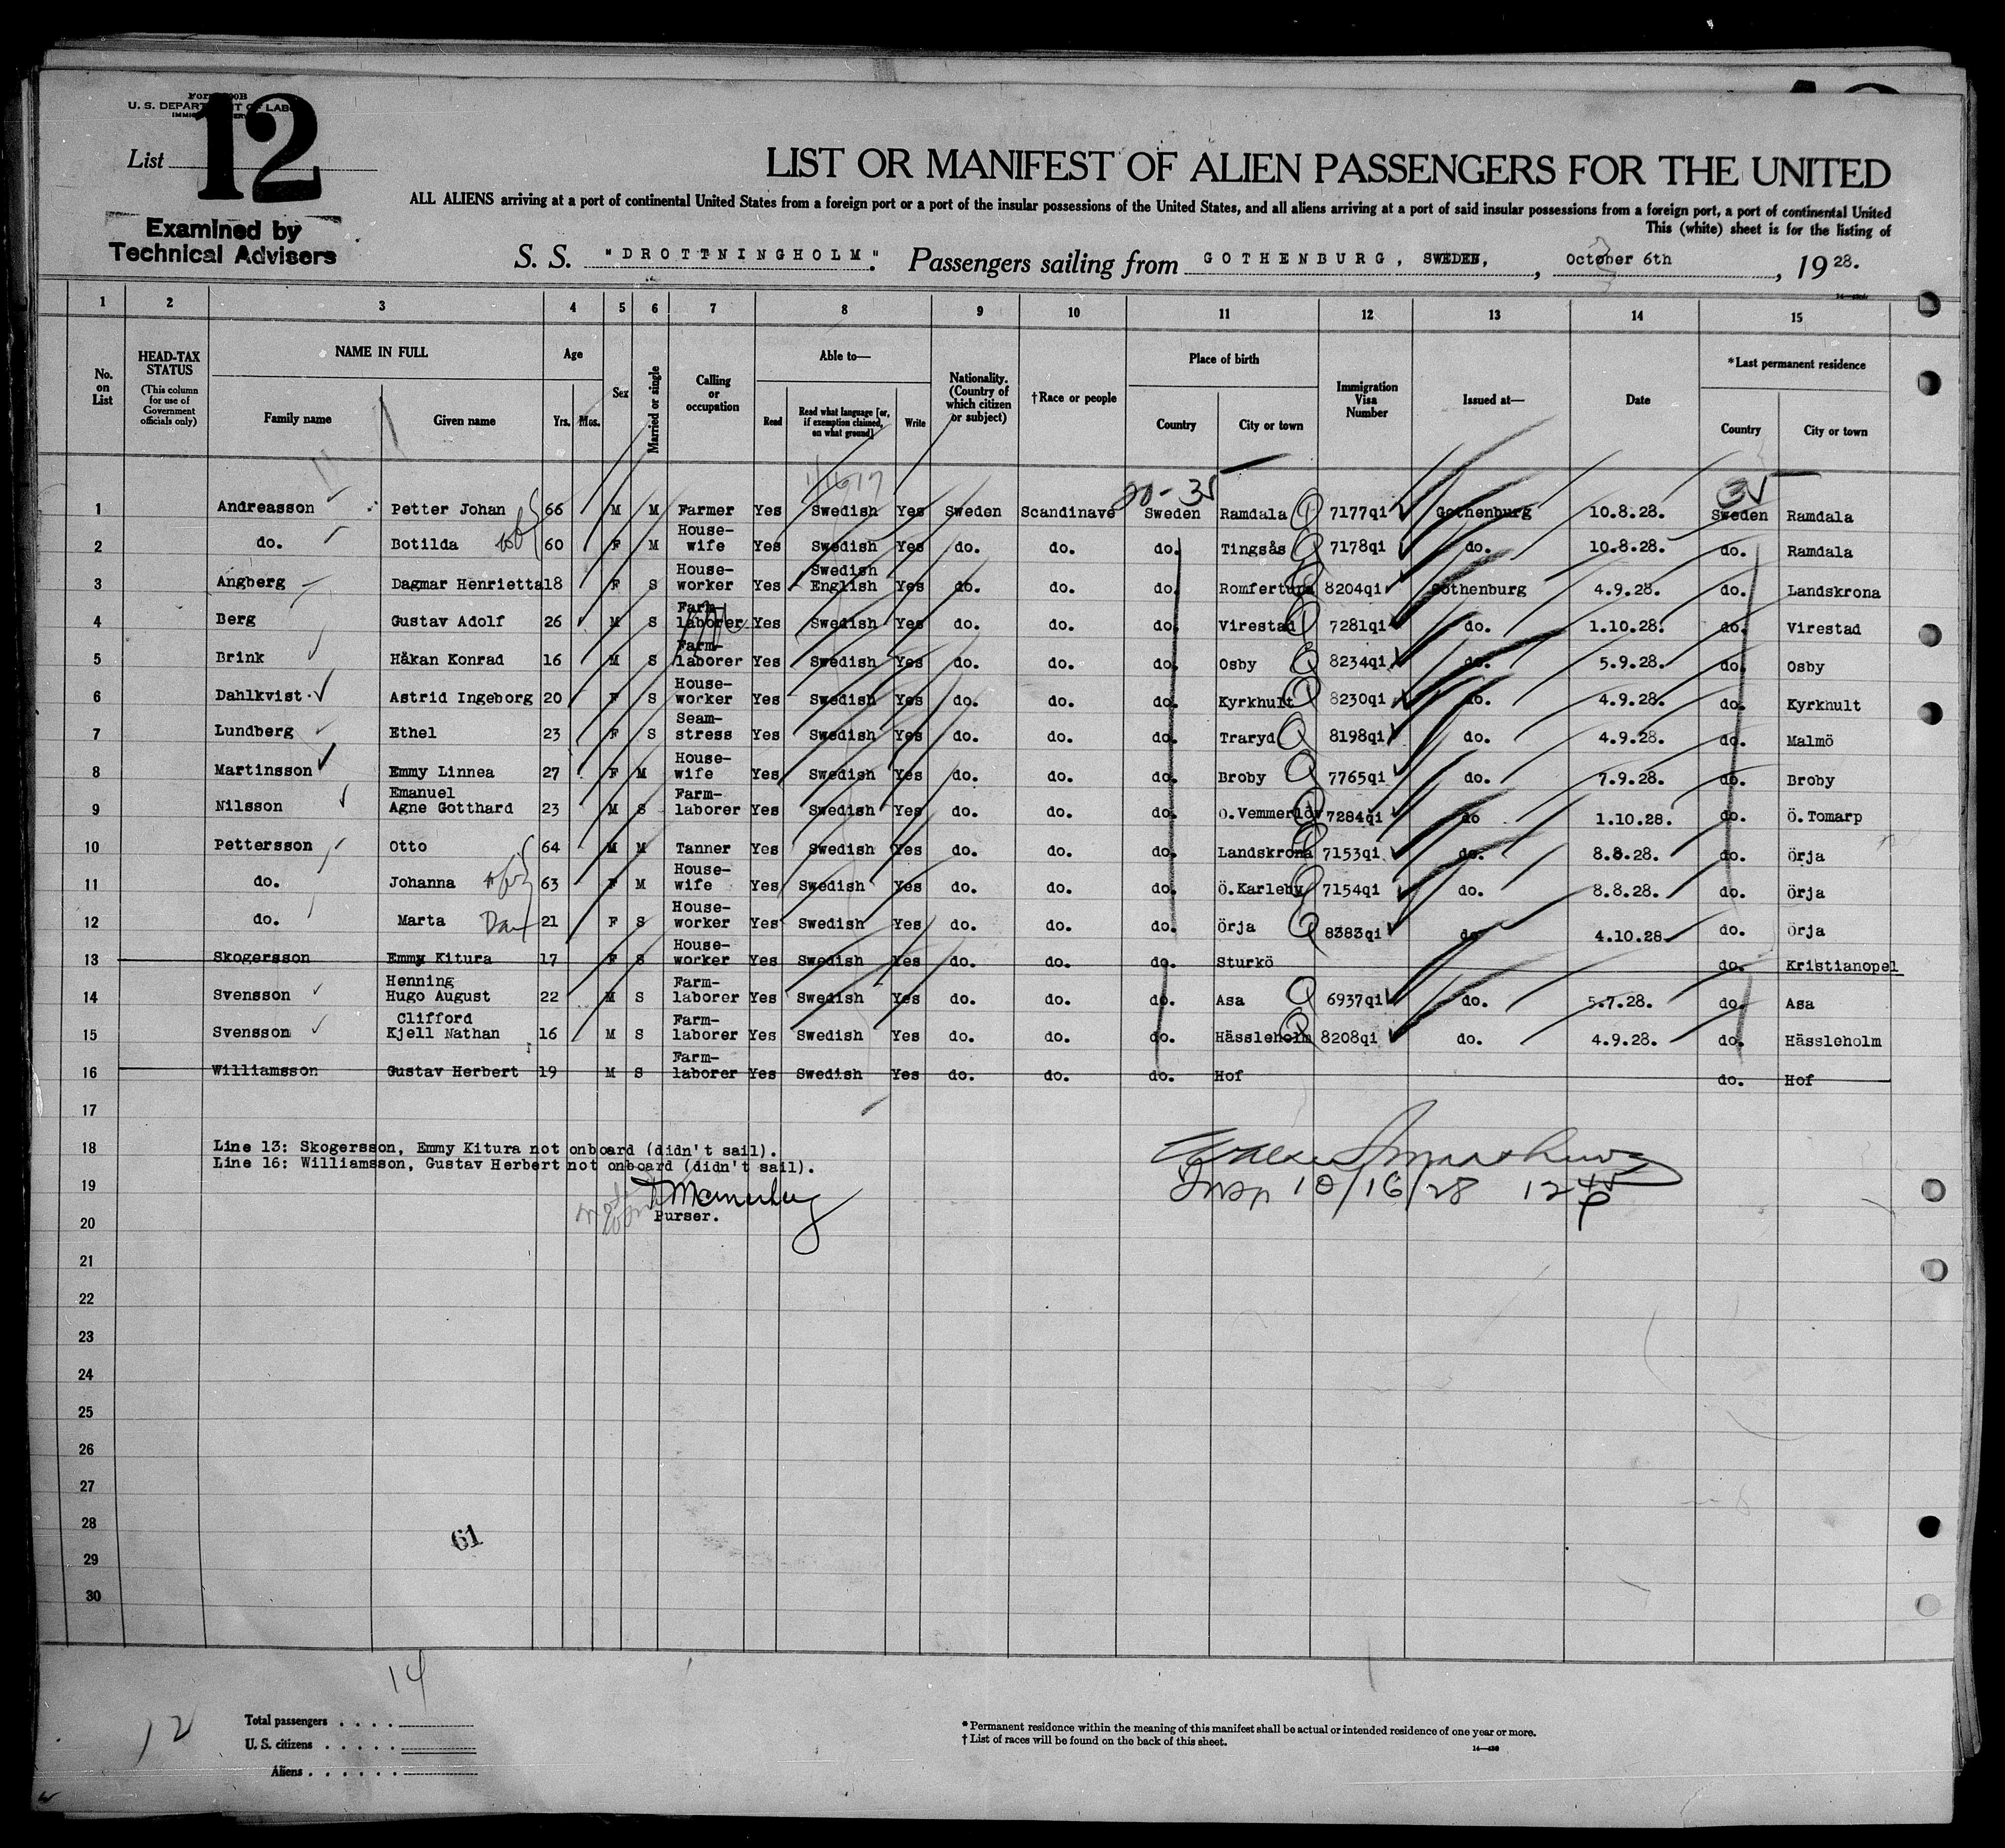 Form 500B
U. S. DEPARTMENT OF LABOR
List 12
Examined by
Technical Advisers
LIST OR MANIFEST OF ALIEN PASSENGERS FOR THE UNITED
ALL ALIENS arriving at a port of continental United States from a foreign port or a port of the insular possessions of the United States, and all aliens arriving at a port of said insular possessions from a foreign port, a port of continental United
This (white) sheet is for the listing of
S. S. "DROTTNINGHOLM". Passengers sailing from GOTHENBURG, SWEDEN, October 6th, 1928.
1 2 3 4 5 6 7 8 9 10 11 12 13 14 15
No. on List
HEAD-TAX STATUS (This column for use of Government officials only)
NAME IN FULL Family name Given name
Age Yrs. Mos.
Sex
Married or single
Calling or occupation
Able to— Read Read what language [or, if exemption claimed, on what ground] Write
Nationality. (Country of which citizen or subject)
†Race or people
Place of birth Country City or town
Immigration Visa Number
Issued at—
Date
*Last permanent residence Country City or town
1 Andreasson Petter Johan 66 M M Farmer Yes Swedish Yes Sweden Scandinave Sweden Ramdala 7177qi Gothenburg 10.8.28. Sweden Ramdala
2 do. Botilda 60 F M House-wife Yes Swedish Yes do. do. do. Tingsås 7178qi do. 10.8.28. do. Ramdala
3 Angberg Dagmar Henrietta 18 F S House-worker Yes Swedish English Yes do. do. do. Romfertuna 8204qi Gothenburg 4.9.28. do. Landskrona
4 Berg Gustav Adolf 26 M S Farm-laborer Yes Swedish Yes do. do. do. Virestad 7281qi do. 1.10.28. do. Virestad
5 Brink Håkan Konrad 16 M S Farm-laborer Yes Swedish Yes do. do. do. Osby 8234qi do. 5.9.28. do. Osby
6 Dahlkvist Astrid Ingeborg 20 F S House-worker Yes Swedish Yes do. do. do. Kyrkhult 8230qi do. 4.9.28. do. Kyrkhult
7 Lundberg Ethel 23 F S Seam-stress Yes Swedish Yes do. do. do. Traryd 8198qi do. 4.9.28. do. Malmö
8 Martinsson Emmy Linnea 27 F M House-wife Yes Swedish Yes do. do. do. Broby 7765qi do. 7.9.28. do. Broby
9 Nilsson Emanuel Agne Gotthard 23 M S Farm-laborer Yes Swedish Yes do. do. do. Ö.Vemmerlöv 7284qi do 1.10.28. do. Ö.Tomarp
10 Pettersson Otto 64 M M Tanner Yes Swedish Yes do. do. do. Landskrona 7153qi do. 8.8.28. do. Örja
11 do. Johanna 63 F M House-wife Yes Swedish Yes do. do. do. Ö.Karleby 7154qi do. 8.8.28. do. Örja
12 do. Marta 21 F S House-worker Yes Swedish Yes do. do. do. Örja 8383qi do 4.10.28. do. Örja
13 Skogersson Emmy Kitura 17 F S House-worker Yes Swedish Yes do. do. do. Sturkö do. Kristianopel
14 Svensson Henning Hugo August 22 M S Farm-laborer Yes Swedish Yes do. do. do. Asa 6937qi do. 5.7.28. do. Asa
15 Svensson Clifford Kjell Nathan 16 M S Farm-laborer Yes Swedish Yes do. do. do. Hässleholm 8208qi do. 4.9.28. do. Hässleholm
16 Williamsson Gustav Herbert 19 M S Farm-laborer Yes Swedish Yes do. do. do. Hof do. Hof
17
18 Line 13: Skogersson, Emmy Kitura not onboard (didn't sail).
Line 16: Williamsson, Gustav Herbert not onboard (didn't sail).
19 Insp 10/16/28 1245 p
20 Purser.
21
22
23
24
25
26
27
28
29
30
61
14
12
Total passengers
U. S. citizens
Aliens
* Permanent residence within the meaning of this manifest shall be actual or intended residence of one year or more.
† List of races will be found on the back of this sheet.